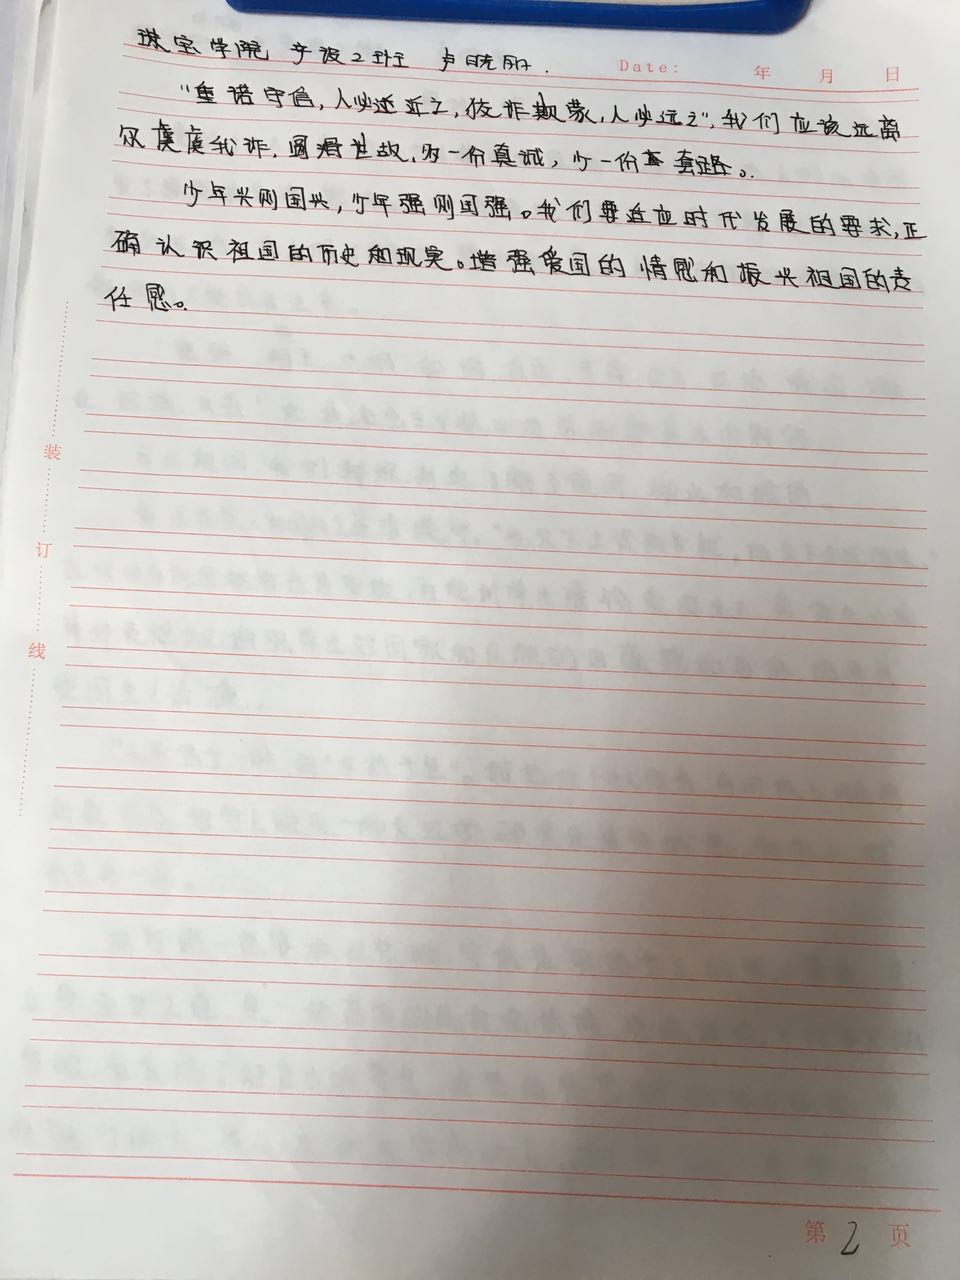 珠宝学院 产设2班 卢晓丽.
Date: 年 月 日
"重诺守信,人必近之,狡诈欺蒙,人必远之",我们应该远离
尔虞我诈,圆滑世故,多一份真诚,少一份套路。
少年兴则国兴,少年强则国强。我们要适应时代发展的要求,正
确认识祖国的历史和现实。增强爱国的情感和振兴祖国的责
任感。
装
订
线
第 2 页